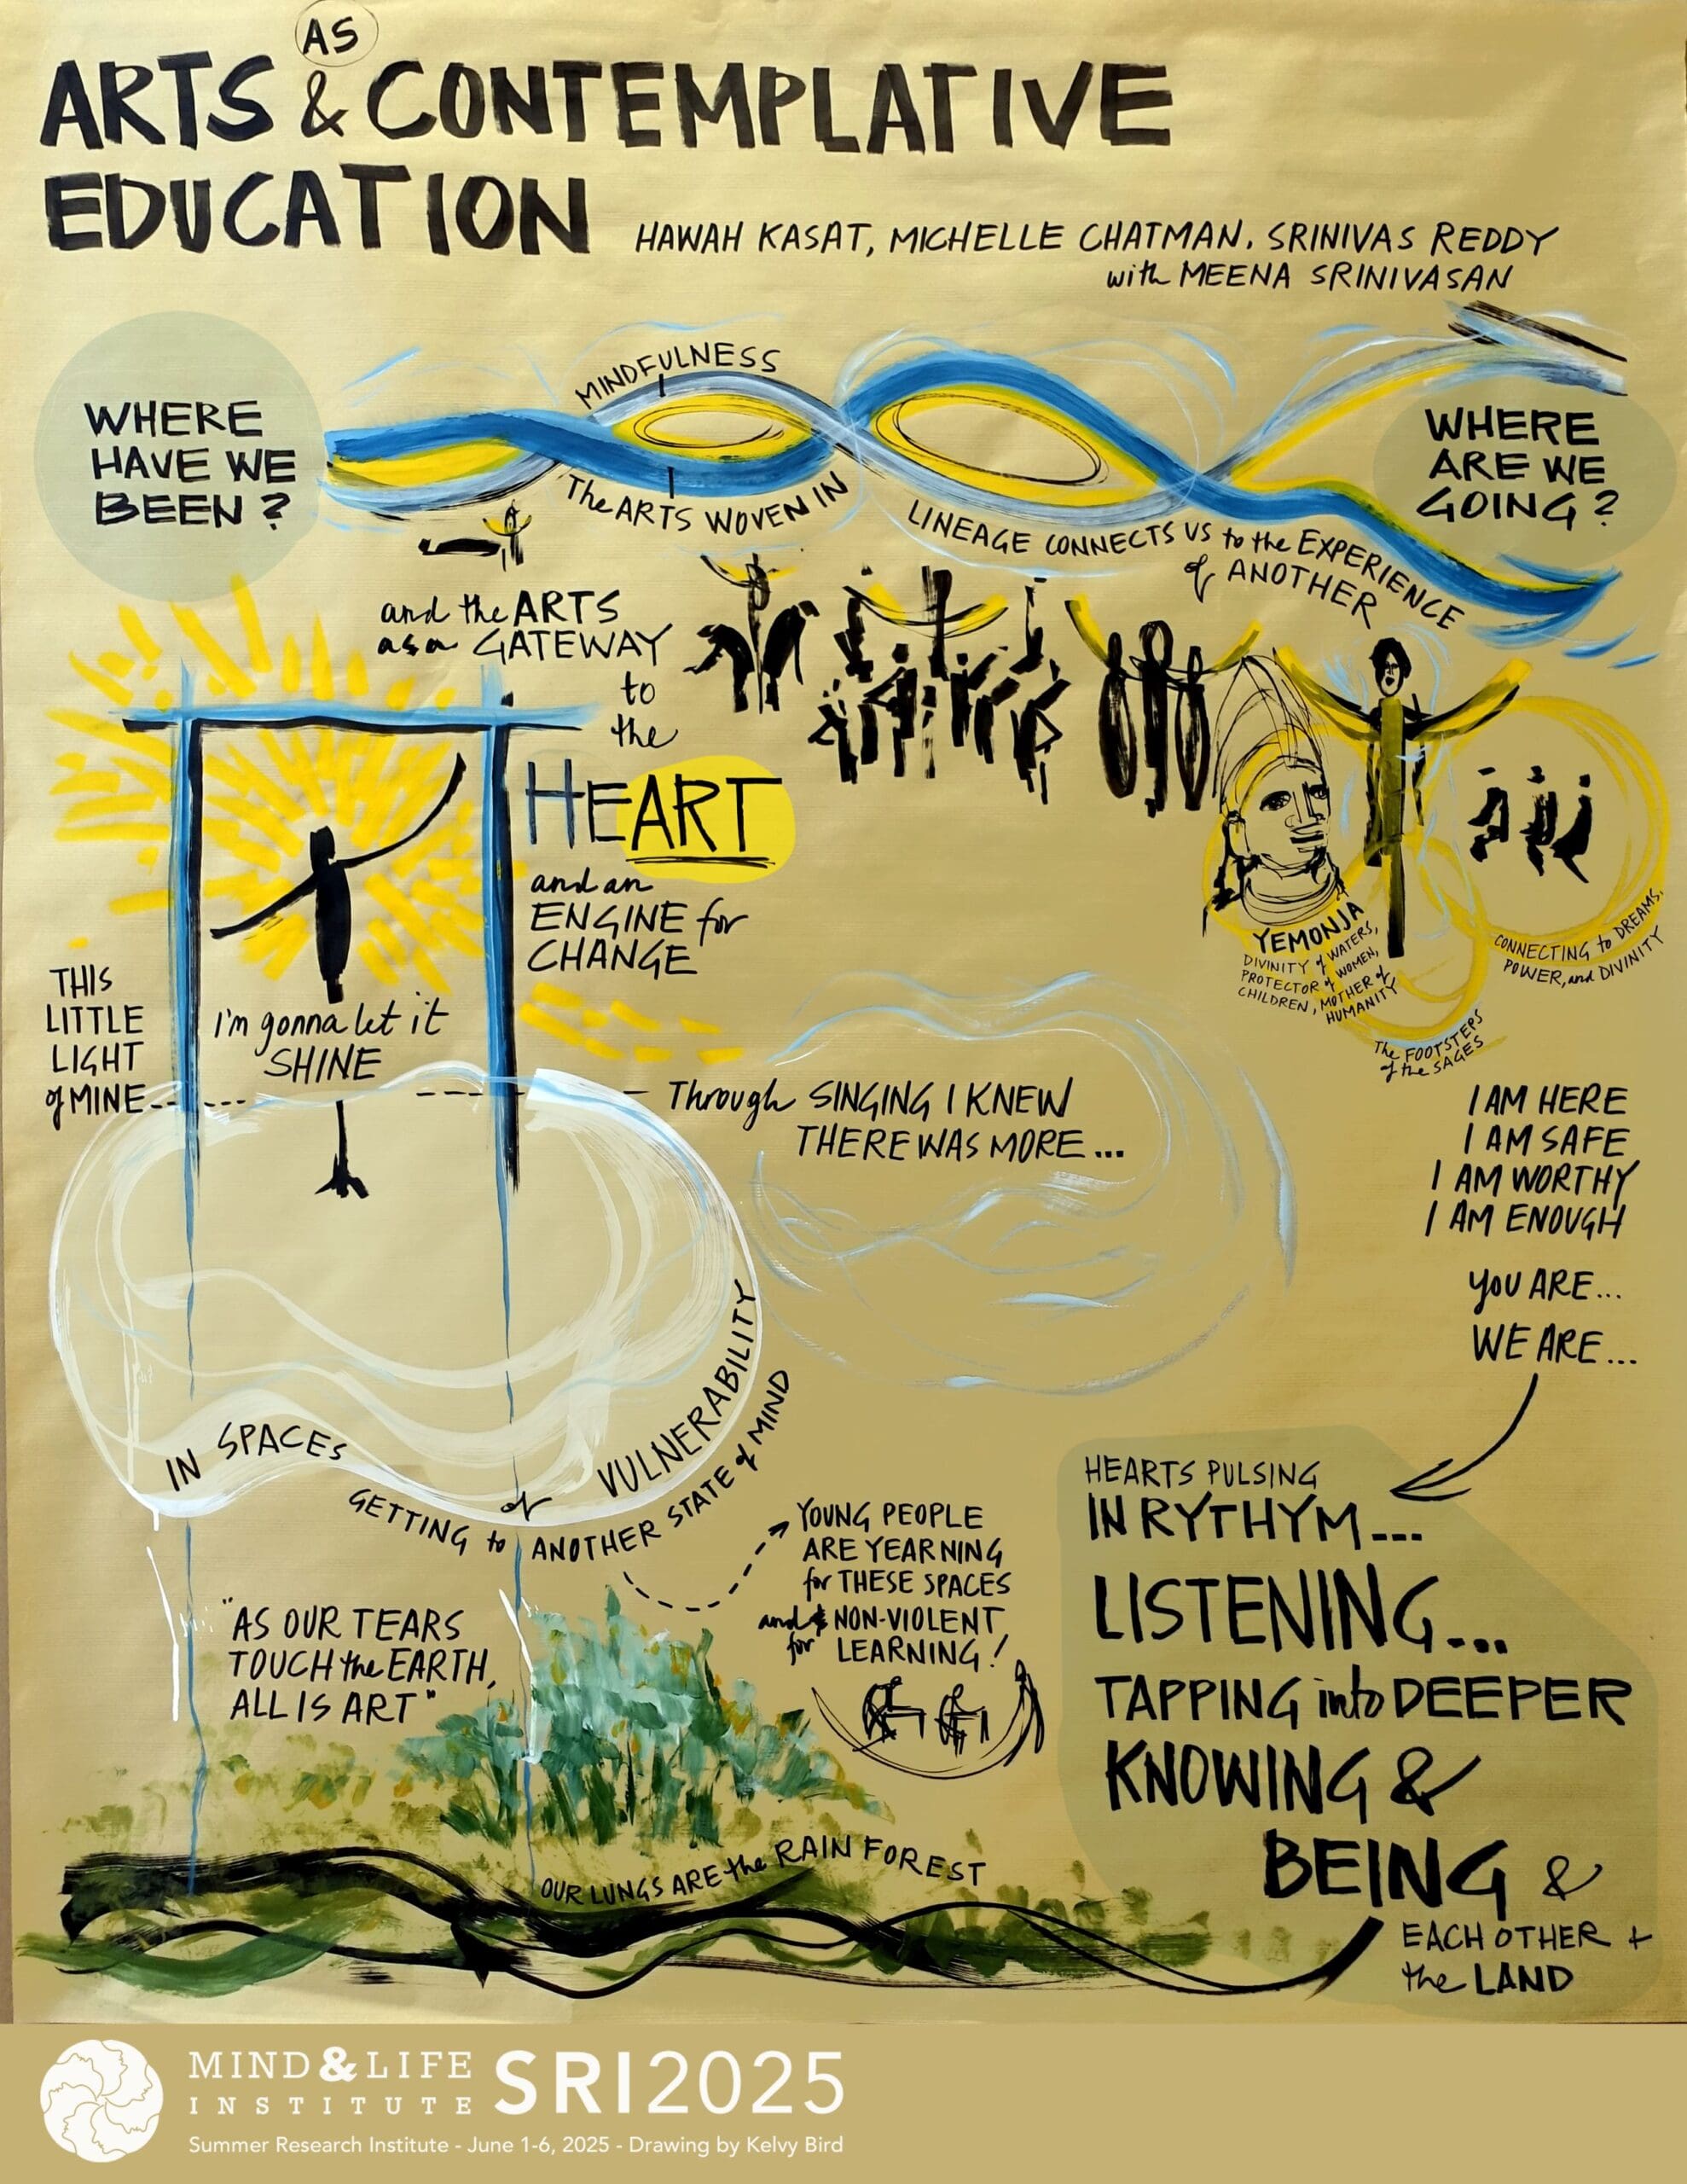 AS
ARTS & CONTEMPLATIVE
EDUCATION
HAWAH KASAT, MICHELLE CHATMAN, SRINIVAS REDDY
with MEENA SRINIVASAN
WHERE
HAVE WE
BEEN?
MINDFULNESS
The ARTS WOVEN IN
LINEAGE CONNECTS US to the EXPERIENCE
of ANOTHER
WHERE
ARE WE
GOING?
and the ARTS
as a GATEWAY
to
the
HEART
and an
ENGINE for
CHANGE
YEMONJA
DIVINITY of WATERS,
PROTECTOR of WOMEN,
CHILDREN, MOTHER of
HUMANITY
CONNECTING to DREAMS,
POWER, and DIVINITY
The FOOTSTEPS
of the SAGES
THIS
LITTLE
LIGHT
of MINE
I'm gonna let it
SHINE
Through SINGING I KNEW
THERE WAS MORE...
I AM HERE
I AM SAFE
I AM WORTHY
I AM ENOUGH
YOU ARE...
WE ARE...
IN SPACES
of
VULNERABILITY
GETTING to ANOTHER STATE of MIND
YOUNG PEOPLE
ARE YEARNING
for THESE SPACES
and NON-VIOLENT
for LEARNING!
HEARTS PULSING
IN RYTHYM...
LISTENING...
TAPPING into DEEPER
KNOWING &
BEING &
EACH OTHER +
the LAND
"AS OUR TEARS
TOUCH the EARTH,
ALL IS ART"
OUR LUNGS ARE the RAIN FOREST
MIND&LIFE
INSTITUTE
SRI2025
Summer Research Institute - June 1-6, 2025 - Drawing by Kelvy Bird